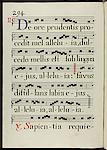 294
De ore prudentis pro-
cedit mel allelu ia, dul-
cedo mellis est sub lingua
ejus, allelu ia: favus
distillans labia e-
jus, allelu ia, allelu ia.
℣. Sapien tia requie-